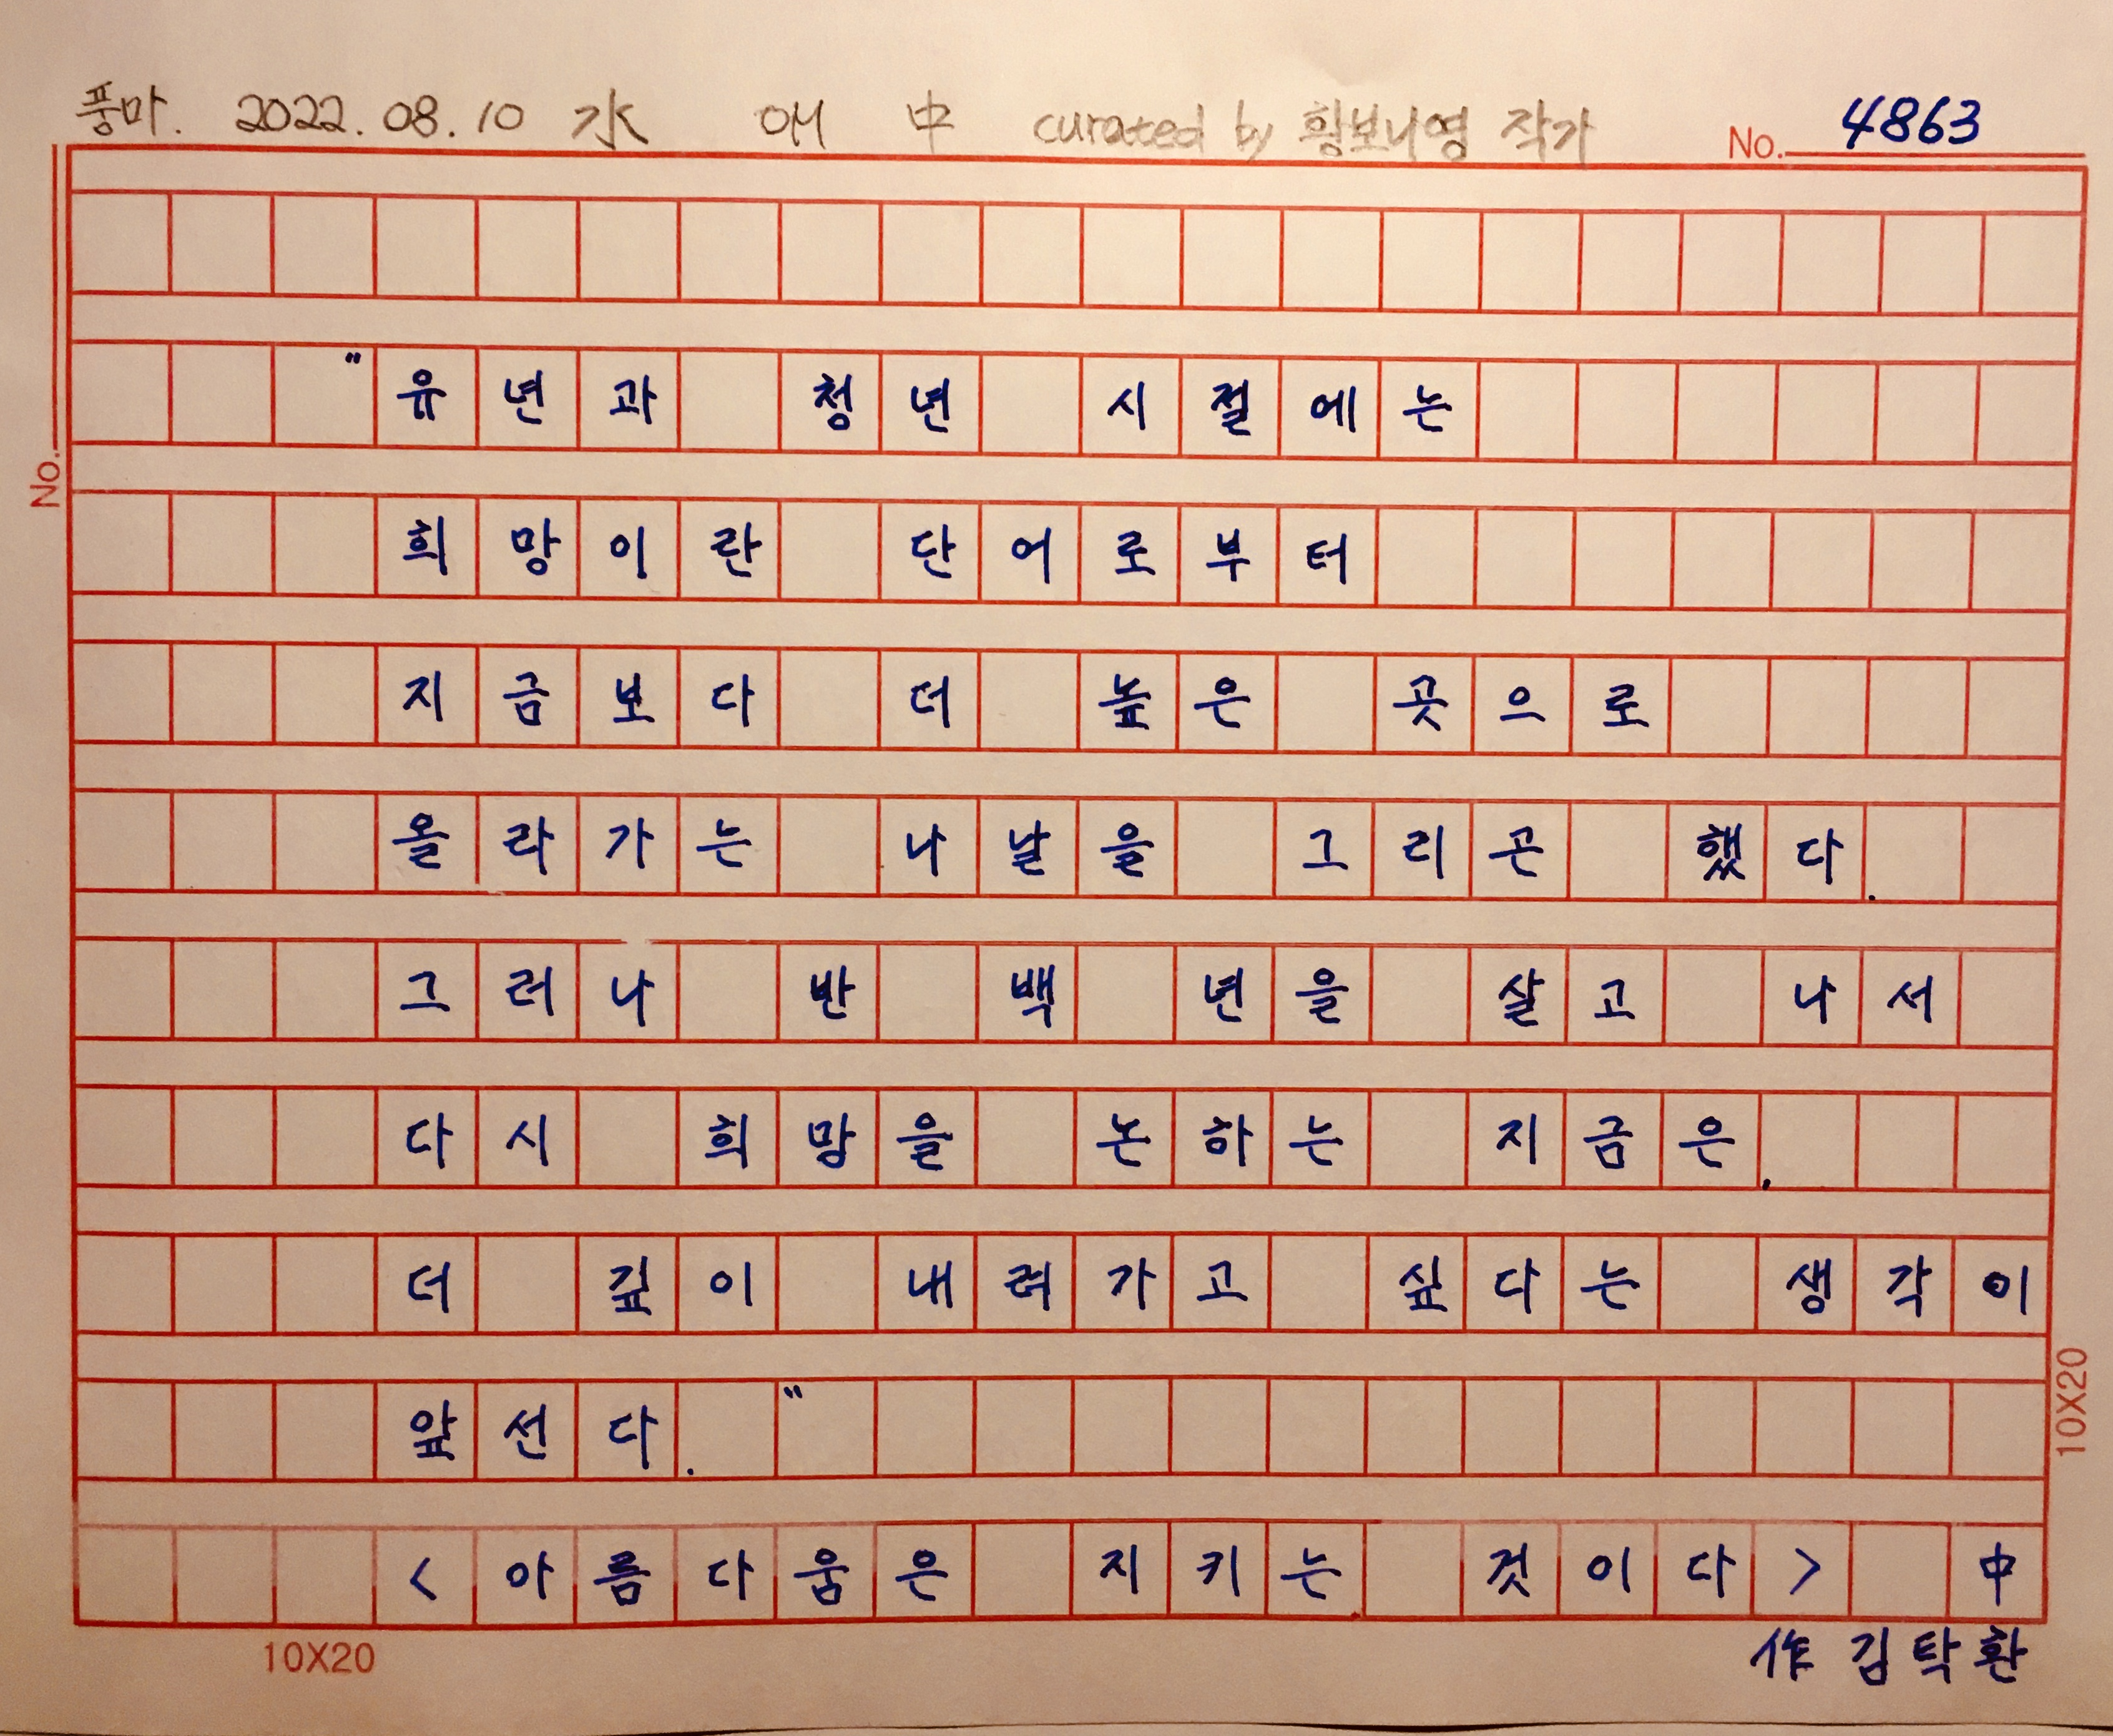 풍마. 2022.08.10 水 애 中 curated by 황보나영 작가 No. 4863
"유년과 청년 시절에는
희망이란 단어로부터
지금보다 더 높은 곳으로
올라가는 나날을 그리곤 했다.
그러나 반 백 년을 살고 나서
No.
다시 희망을 논하는 지금은.
더 깊이 내려가고 싶다는 생각이
앞선다."
10X20
<아름다움은 지키는 것이다> 中
10X20
作 김탁환